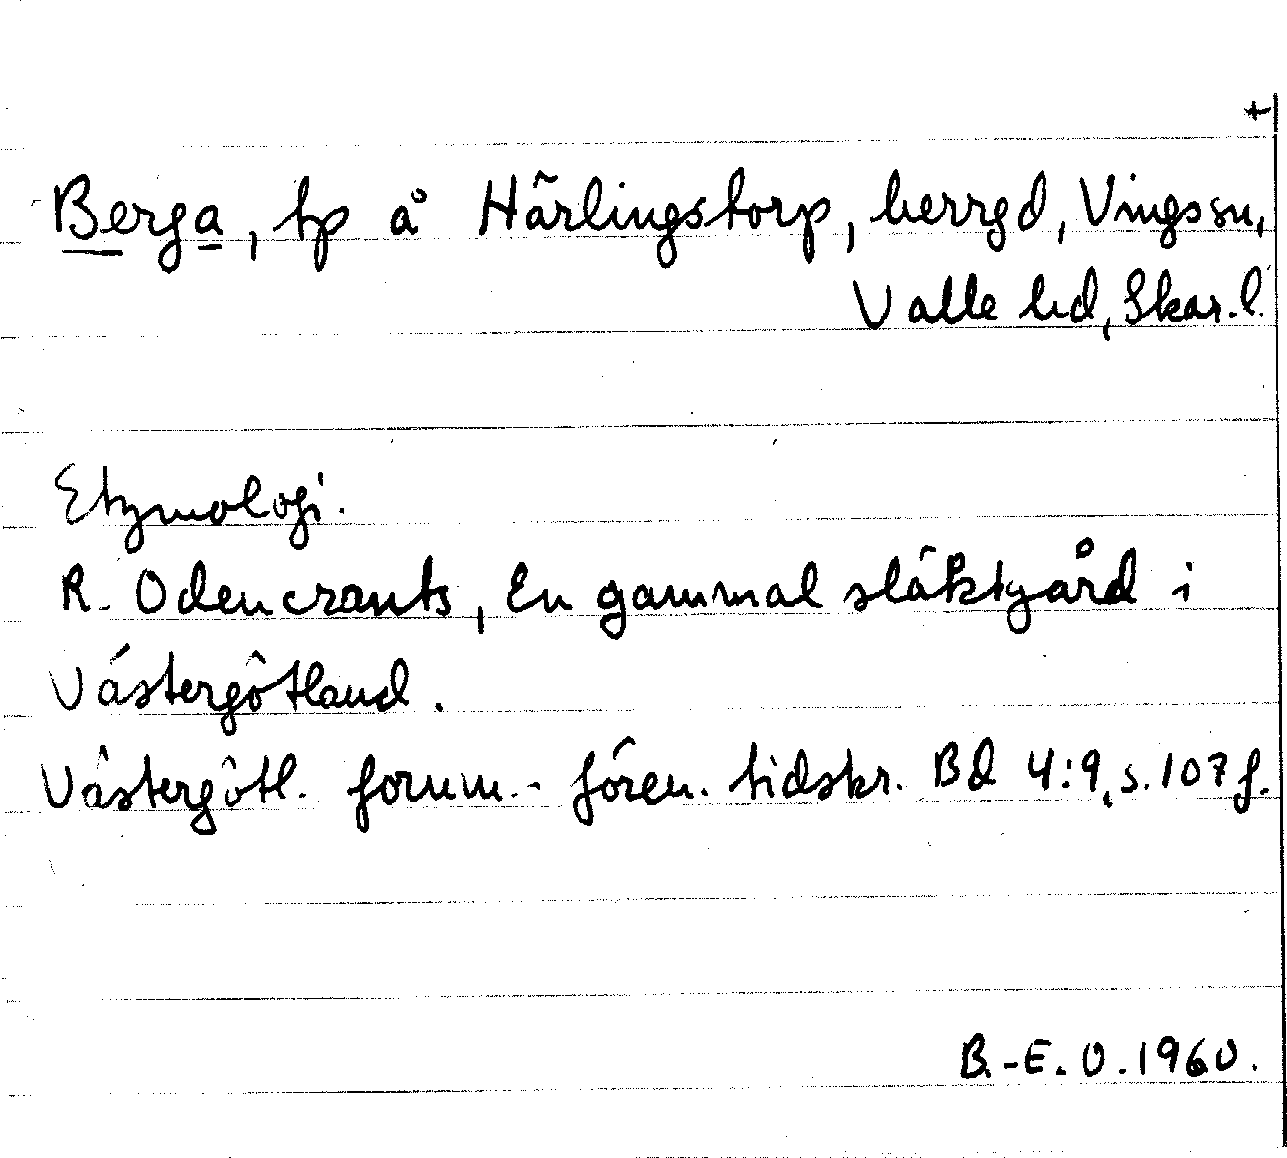 +
Berga, tp å Härlingstorp, herrgd, Vingssn,
Valle hd, Skar.l.
Etymologi.
R. Odencrants, En gammal släktgård i
Västergötland.
Västergötl. fornm.-fören. tidskr. Bd 4:9, s. 107 f.
B.-E. O. 1960.